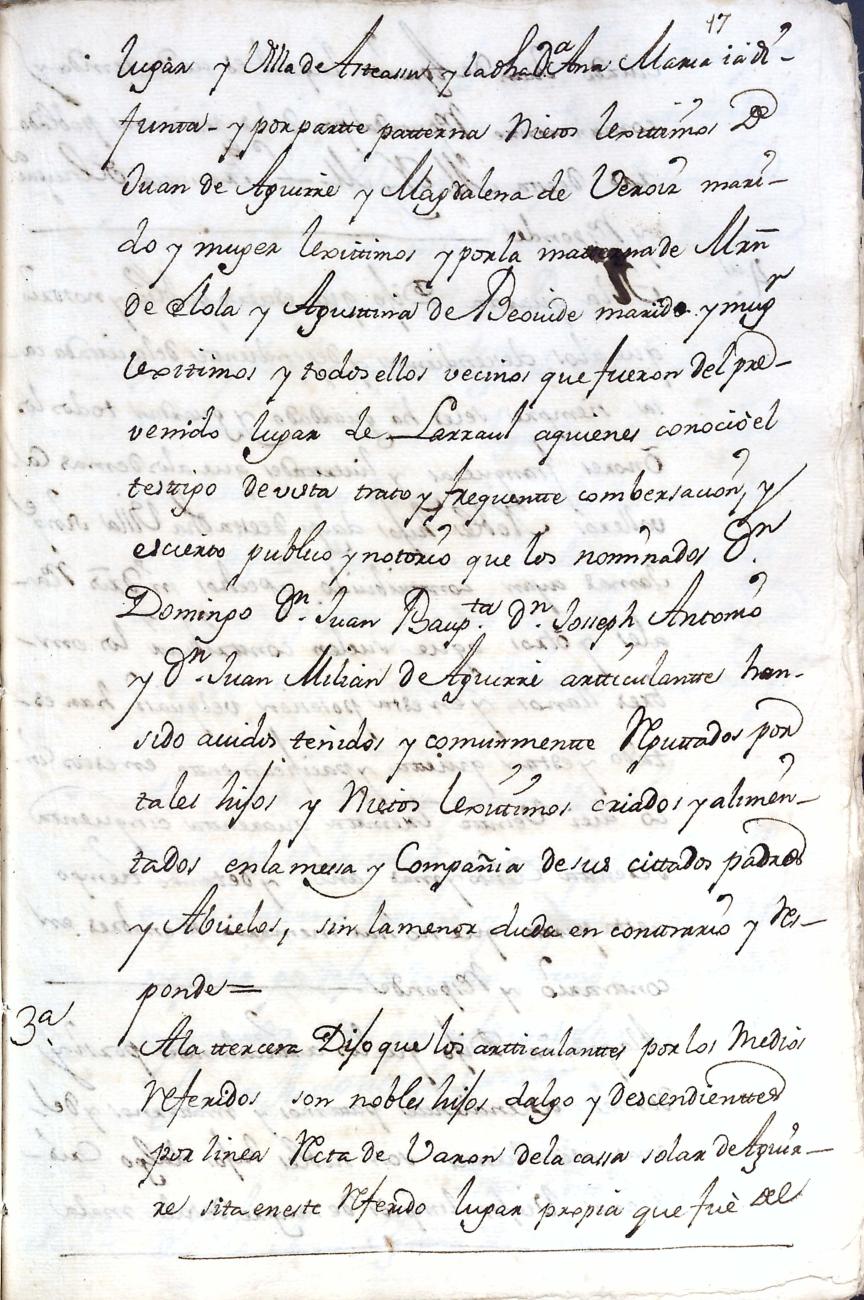 17
lugar y Villa de Asteassu y la dha Dª Ana Maria ia di-
funta- y por partte patterna Nietos lexittimos De
Juan de Aguirre y Magdalena de Veroiz mari-
do y muger lexittimos y por la matterna de Mrñ
de Elola y Agusttina de Beovide marido y mugr
lexitimos y todos ellos vecinos que fueron del pre-
venido lugar de Larraul aquienes conocio el
testtigo de vista trato y frequentte combersacion, y
es cierto publico y notorio que los nominados Dn.
Domingo Dn. Juan Baupta. Dn. Joseph Antonio
y Dn. Juan Milian de Aguirre artticulantte han-
sido avidos tenidos y comunmentte Reputtados por
tales hijos y Nietos lexittimos criados y alimen-
tados en la messa y Compañia de sus cittados padres
y Abuelos, sin la menor duda en conttrario y Res-
ponde=
3ª. A la ttercera Dijo que los artticulanttes por los Medios
Referidos son nobles hijos dalgo y descendienttes
por linea Recta de Varon de la cassa solar de Aguir-
re sita en este Referido lugar propia que fue del